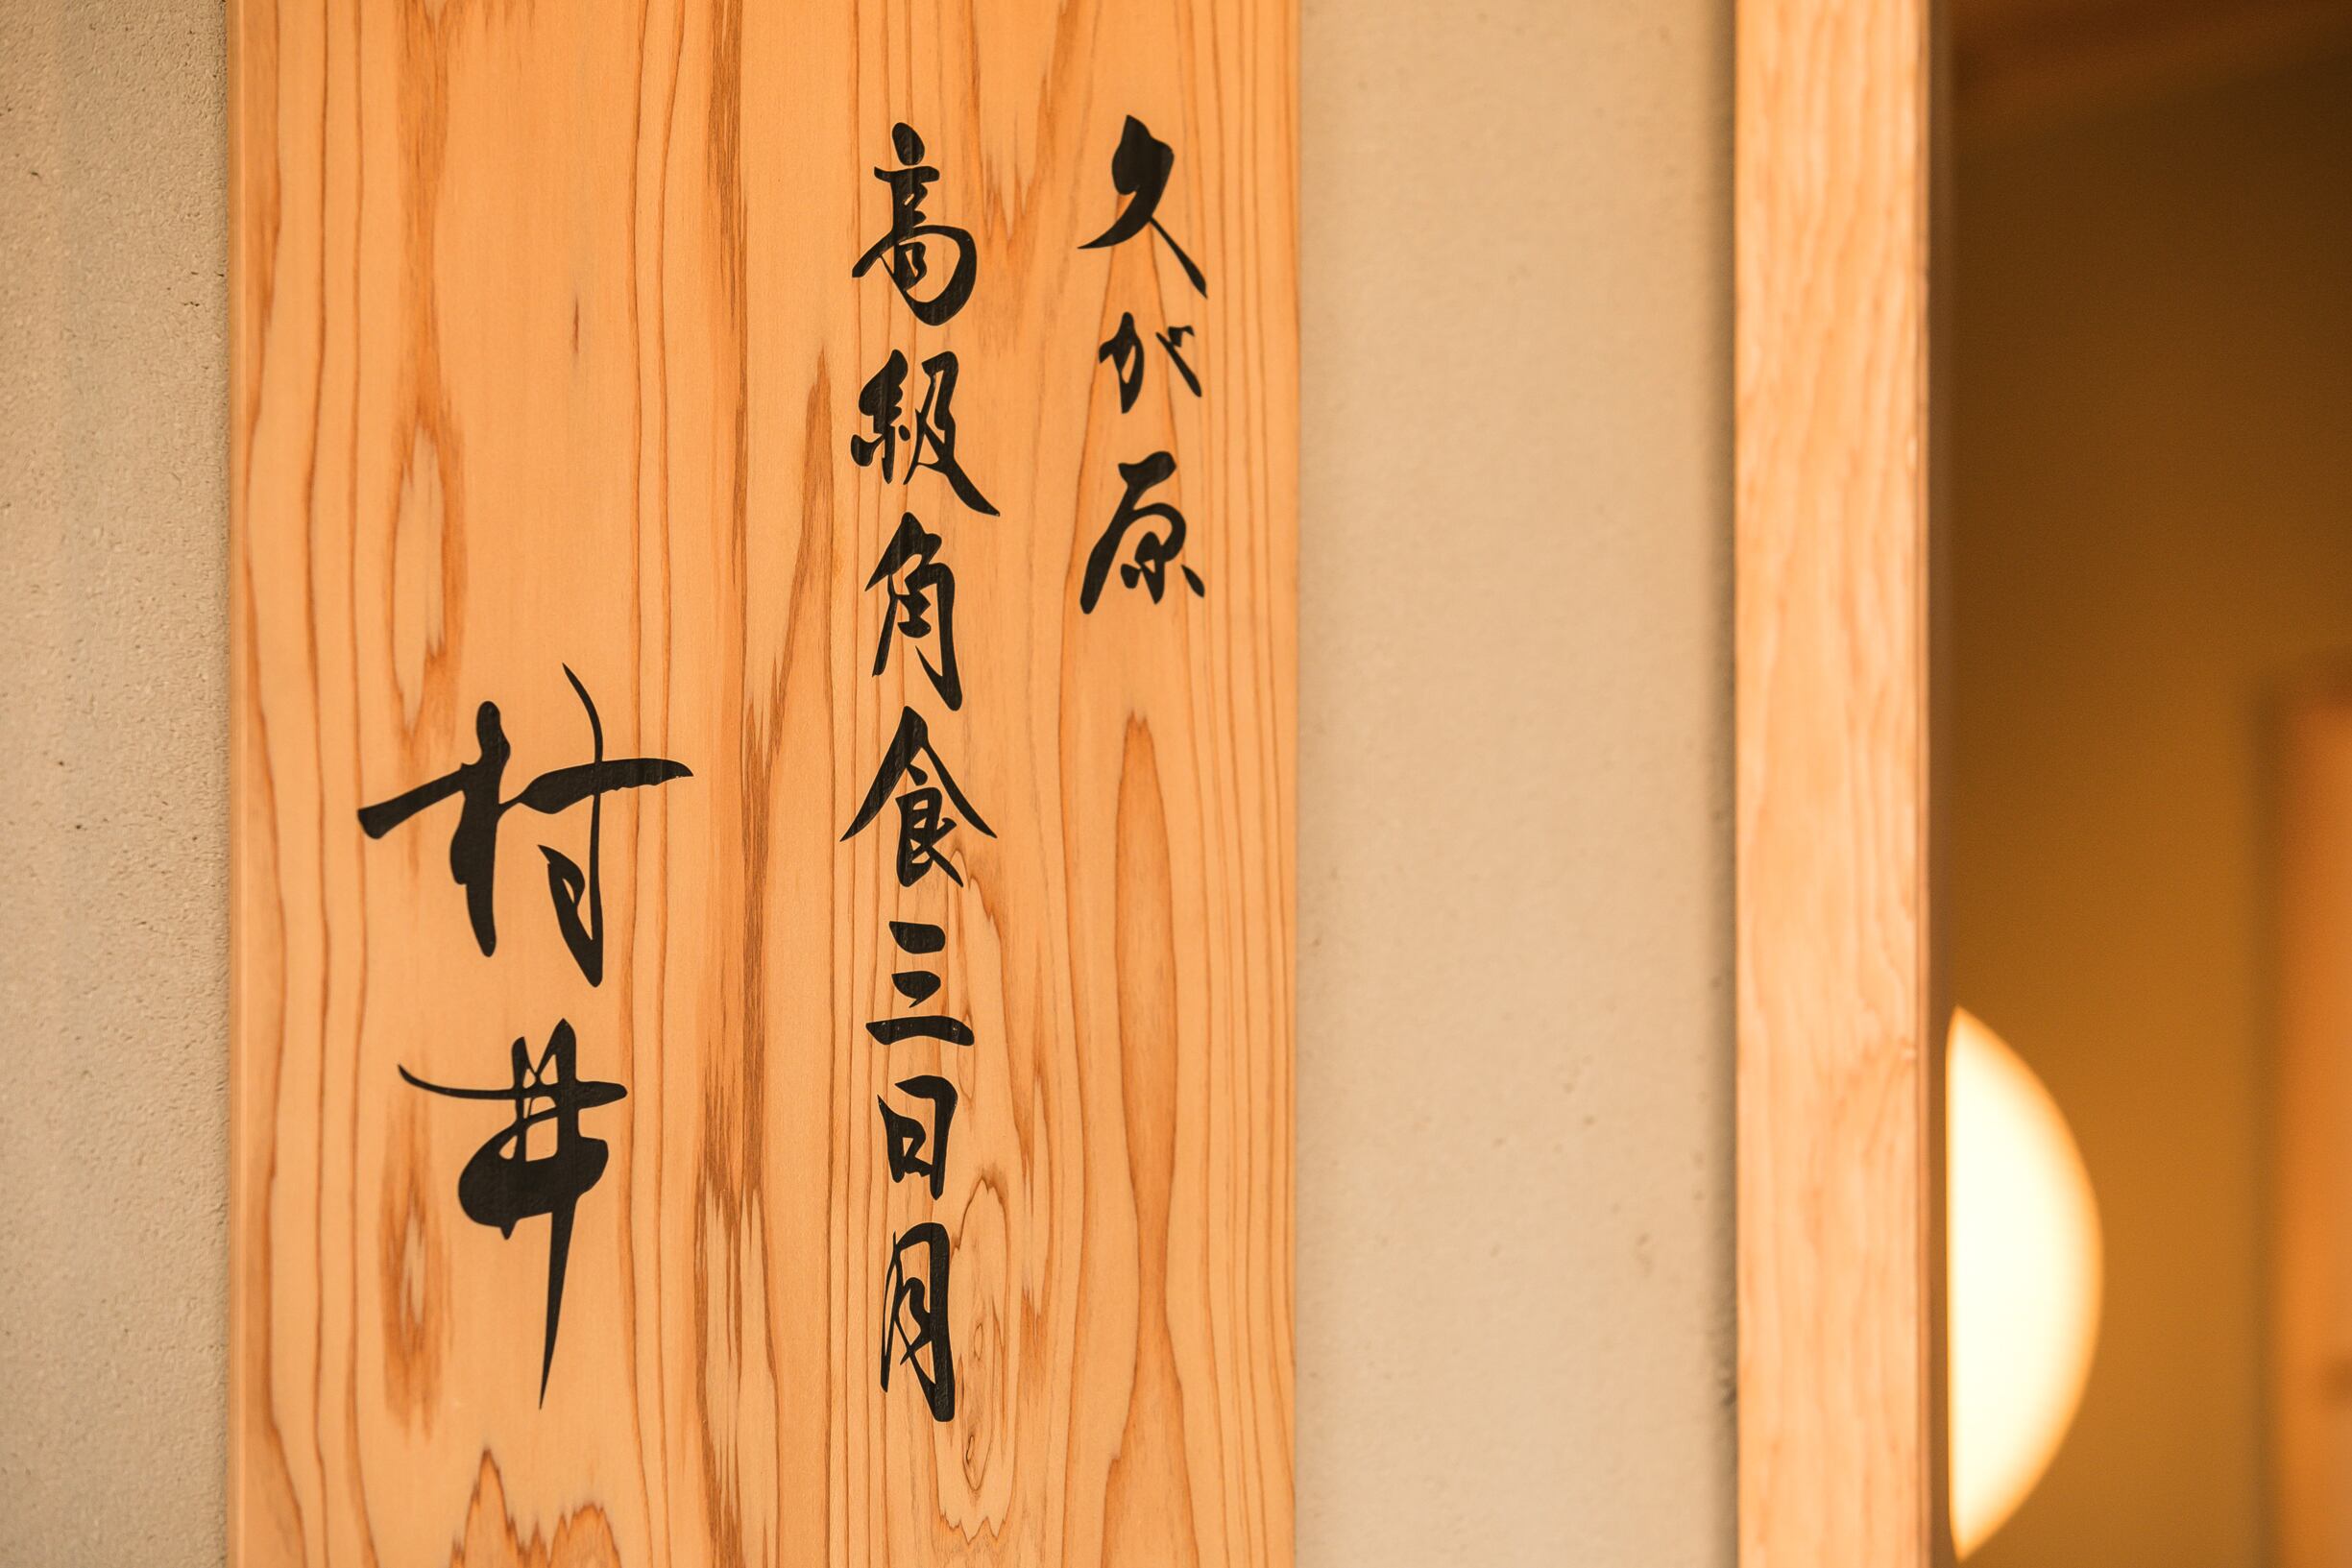 久が原
高級角食三日月
村井